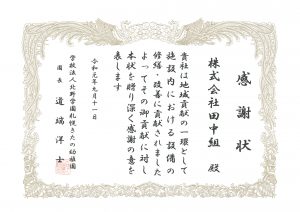 感謝状
株式会社田中組 殿
貴社は地域貢献の一環として
施設内における設備の
修繕・改善に貢献されました
よってその御貢献に対し
本状を贈り深く感謝の意を
表します
令和元年九月十一日
学校法人北野学園札幌きたの幼稚園
園長 道端洋士